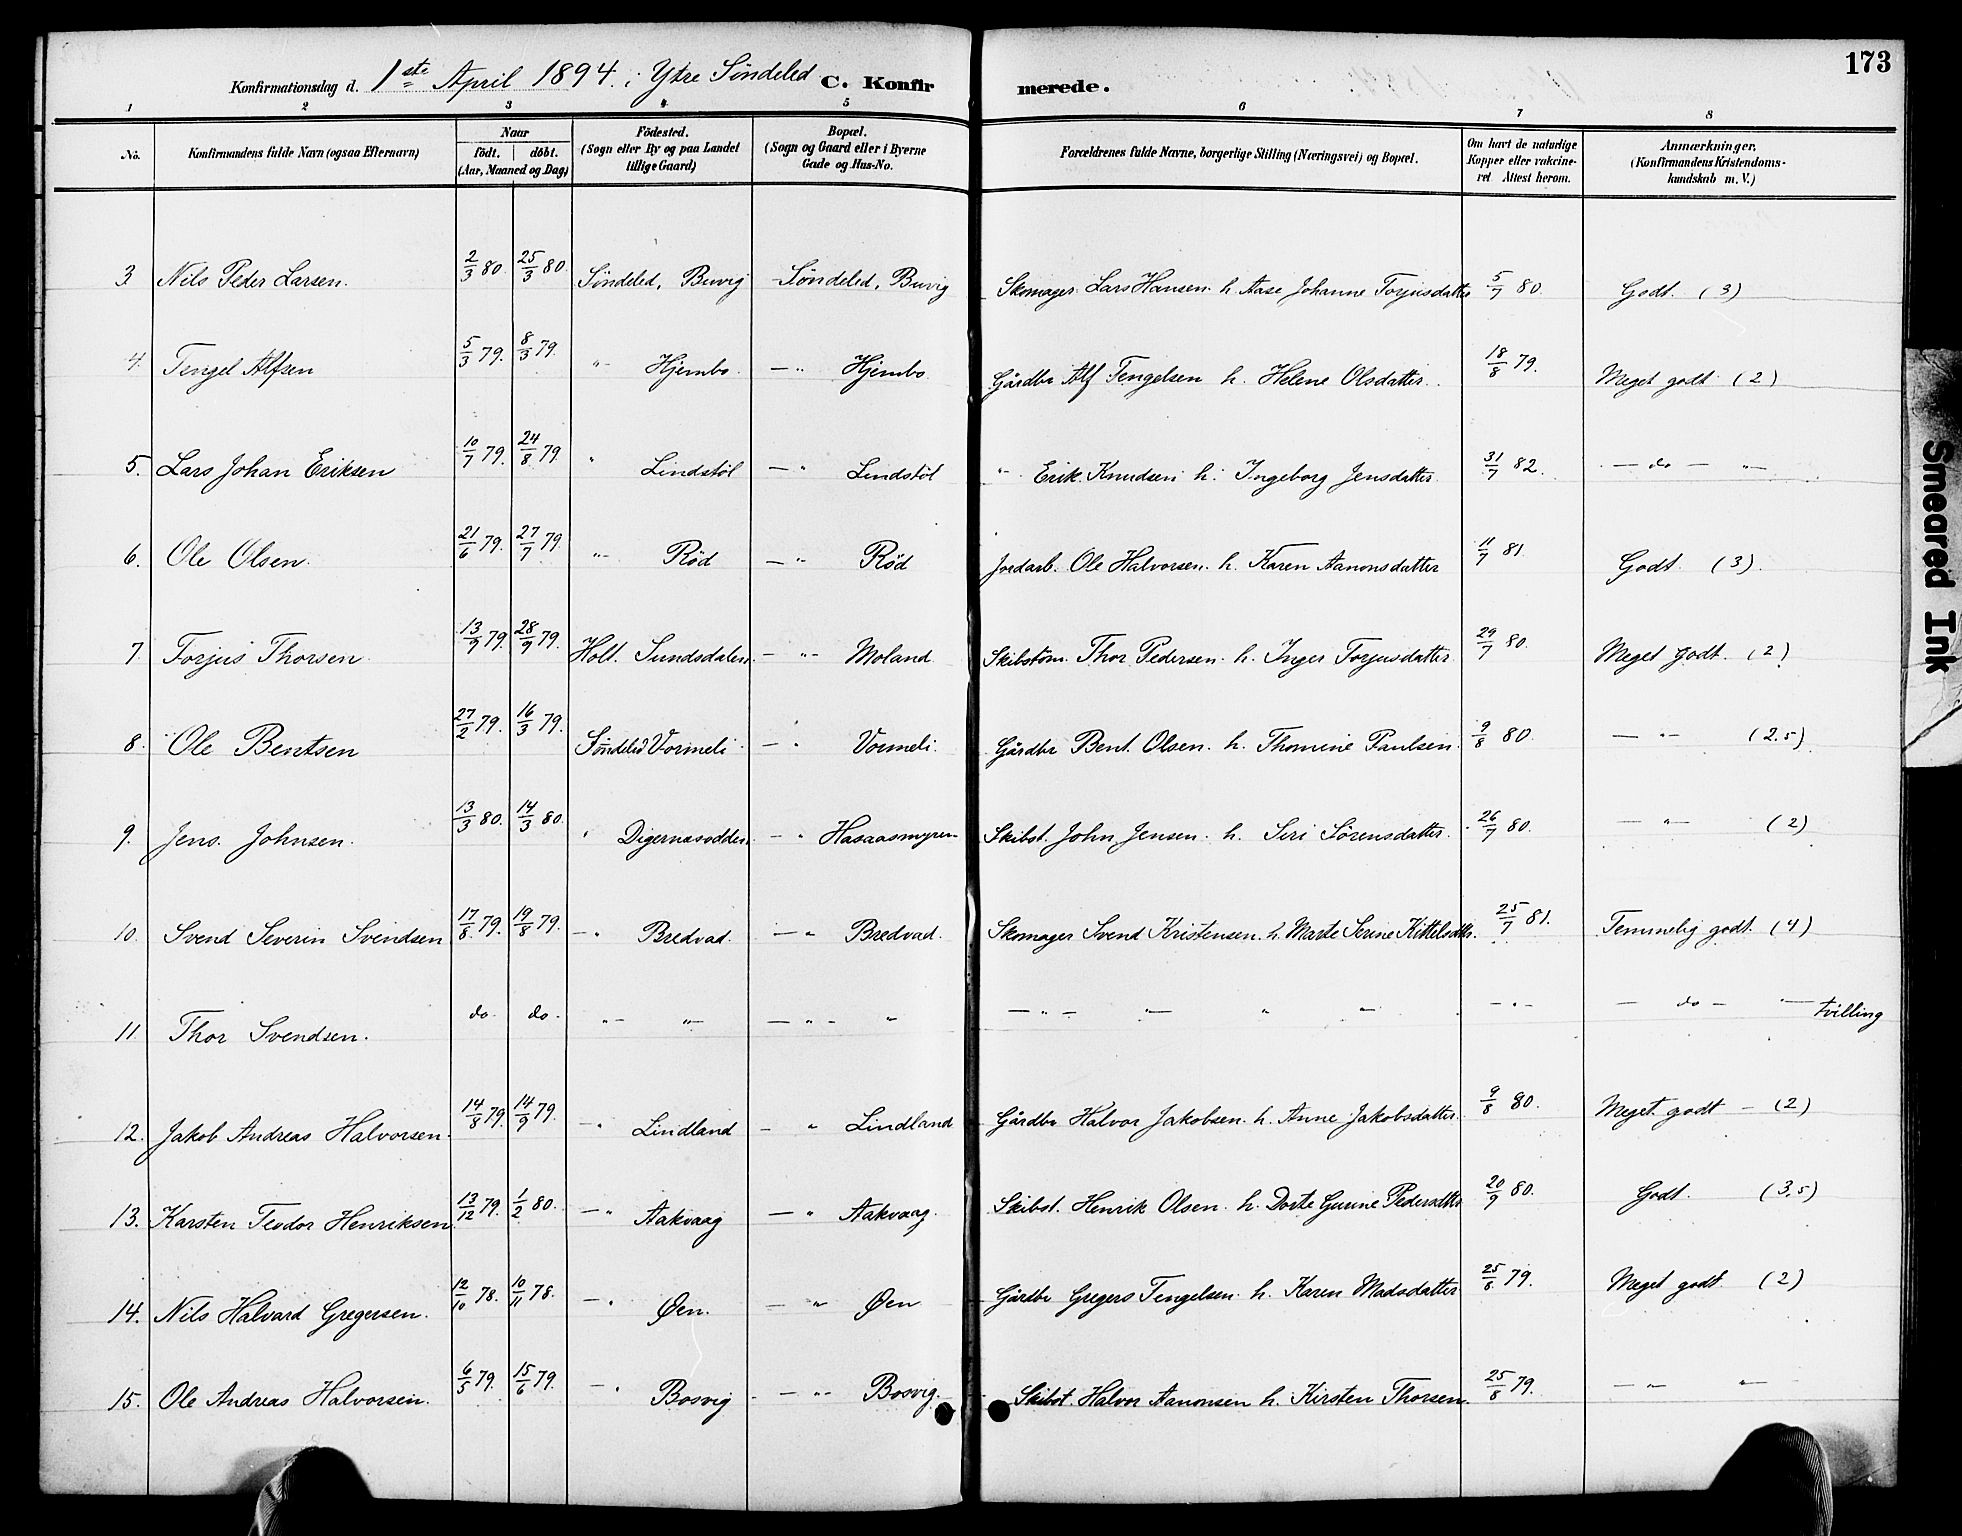 173
Konfirmationsdag d. 1ste April 1894. i Ytre Söndeled C. Konfir merede.
1 2 3 4 5 6 7 8
No. Konfirmandens fulde Navn (ogsaa Efternavn) Naar födt. döbt. (Aar, Maaned og Dag) Födested. (Sogn eller By og paa Landet tillige Gaard) Bopæl. (Sogn og Gaard eller i Byerne Gade og Hus-No. Forældrenes fulde Navne, borgerlige Stilling (Næringsvei) og Bopæl. Om havt de naturlige Kopper eller vakcineret Attest herom. Anmærkninger. (Konfirmandens Kristendomskundskab m. V.)
3 Nils Peder Larsen. 2/3 80. 25/3 80. Söndeled, Buvig Söndeled, Buvig Skomager Lars Hansen h. Aase Johanne Torjusdatter 5/7 80. Godt. (3)
4. Tengel Alfsen 5/3 79. 8/3 79. " Hjembo. — " Hjembo. Gårdbr Alf Tengelsen h. Helene Olsdatter. 18/8 79. Meget godt (2)
5. Lars Johan Eriksen 10/7 79. 24/8 79. " Lindstöl — " Lindstöl " Erik Knudsen h. Ingeborg Jensdatter 31/7 82. — do — "
6. Ole Olsen. 21/6 79. 27/7 79. " Röd — " Röd Jordarb. Ole Halvorsen. h. Karen Aanonsdatter 11/7 81 Godt. (3).
7 Torjus Thorsen. 13/9 79. 28/9 79. Holt. Sundsdalen. — " Moland Skibstöm. Thor Pedersen. h. Inger Torjusdatter 29/7 80. Meget godt. (2)
8. Ole Bentsen 27/2 79. 16/3 79. Söndeled Vormeli — " Vormeli. Gårdbr Bent Olsen. h. Thomine Paulsen. 9/8 80. — " — (2.5)
9. Jens Johnsen. 13/3 80. 14/3 80. " Digernæsodden. — " Hasaasmyren Skibst. John Jensen. h. Siri Sörensdatter. 26/7 80. — " — (2)
10. Svend Severin Svendsen 17/8 79. 19/8 79. — " Bredvad. — " Bredvad. Skomager Svend Kristensen. h. Marte Serine Kittelsdttr. 25/7 81. Temmelig godt. (4)
11 Thor Svendsen. do. do. " — " — " — " — " — " — " " — " — — do — " — tvilling
12. Jakob Andreas Halvorsen. 14/8 79. 14/9 79. — " Lindland — " Lindland Gårdbr Halvor Jakobsen. h. Anne Jakobsdatter. 9/8 80. Meget godt — (2)
13. Karsten Teodor Henriksen 13/12 79. 1/2 80. — " Aakvaag — " Aakvaag. Skibst. Henrik Olsen. h. Dorte Gurine Pedersdttr 20/9 80. Godt. (3,5)
14. Nils Halvard Gregersen. 12/10 78. 10/11 78. — " Øen. — " Øen Gårdbr Gregers Tengelsen. h. Karen Madsdatter 25/8 79. Meget godt. (2)
15. Ole Andreas Halvorsen. 6/5 79. 15/6 79. — " Bosvig — " Bosvig. Skibst. Halvor Aanonsen h. Kirsten Thorsen. 25/8 79. — " — " —
Smeared Ink